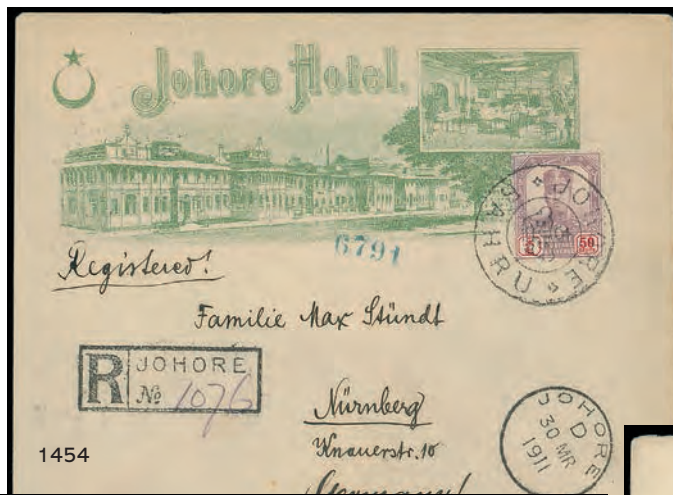 Johore Hotel.
50
JOHORE BAHRU
6791
Registered!
Familie Max Stündt
R JOHORE
No 1076
Nürnberg
Knauerstr. 10
Germany!
JOHORE
D
30 MR
1911
1454